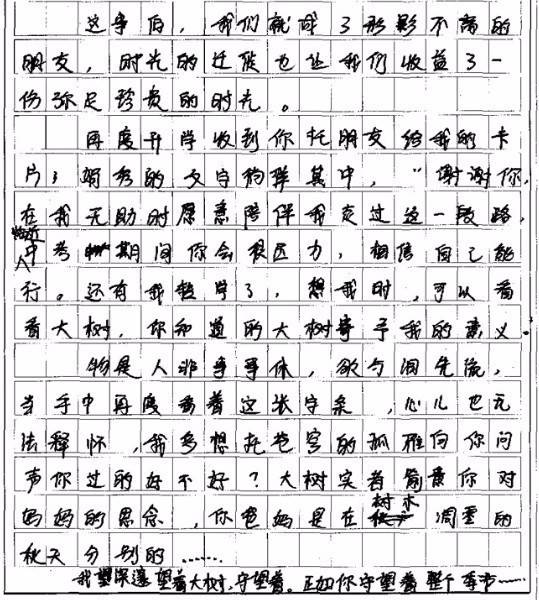 这事后，我们就成了形影不离的
朋友，时光的迁徙也让我们收益了一
份弥足珍贵的时光。
再度升学收到你托朋友给我的卡
片；娟秀的文字徜徉其中，“谢谢你，
在我无助时愿意陪伴我走过这一段路，
中考期间你会很压力，相信自己能
行。还有我转学了，想我时，可以看
看大树，你知道的大树寄予我的意义。
物是人非事事休，欲与泪先流，
当手中再度看着这张字条，心儿也无
法释怀，我多想托苍穹的孤雁向你问
声你过的好不好？大树实着你对
妈妈的思念，你爸妈是在树木凋零的
秋天分别的……
我望深邃望着大树，守望着。正如你守望着整个季节……